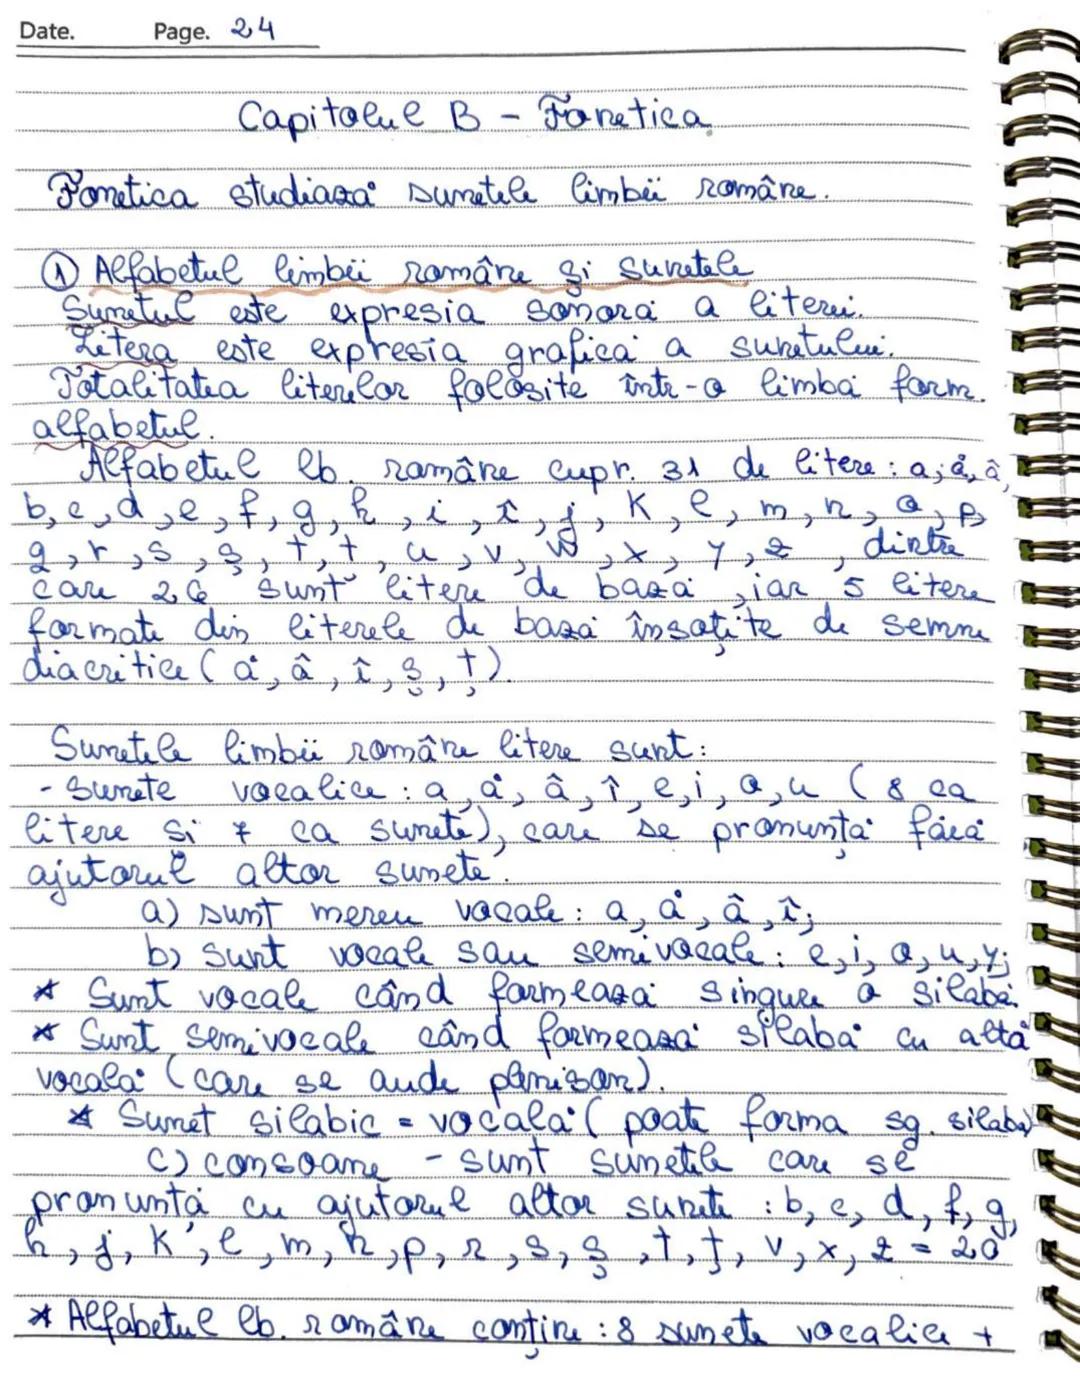 Date. Page. 24
Capitolul B - Fonetica
Fonetica studiază sunetele limbii române.
① Alfabetul limbii române și sunetele
Sunetul este expresia sonoră a literei.
Litera este expresia grafică a sunetului.
Totalitatea literelor folosite într-o limbă form.
alfabetul.
Alfabetul lb. române cupr. 31 de litere : a, ă, â,
b, c, d, e, f, g, h, i, î, j, k, l, m, n, o, p,
q, r, s, ș, t, ț, u, v, w, x, y, z, dintre
care 26 sunt litere de bază, iar 5 litere
formate din literele de bază însoțite de semne
diacritice ( ă, â, î, ș, ț ).
Sunetele limbii române litere sunt:
- sunete vocalice : a, ă, â, î, e, i, o, u ( 8 ca
litere și 7 ca sunete), care se pronunță fără
ajutorul altor sunete.
a) sunt mereu vocale : a, ă, â, î;
b) sunt vocale sau semivocale : e, i, o, u, y;
* Sunt vocale când formează singure o silabă.
* Sunt semivocale când formează silabă cu altă
vocală (care se aude plenison).
* Sunet silabic = vocală ( poate forma sg. silabă)
c) consoane - sunt sunetele care se
pronunță cu ajutorul altor sunete : b, c, d, f, g,
h, j, k, l, m, n, p, r, s, ș, t, ț, v, x, z = 20
* Alfabetul lb. române conține : 8 sunete vocalice +